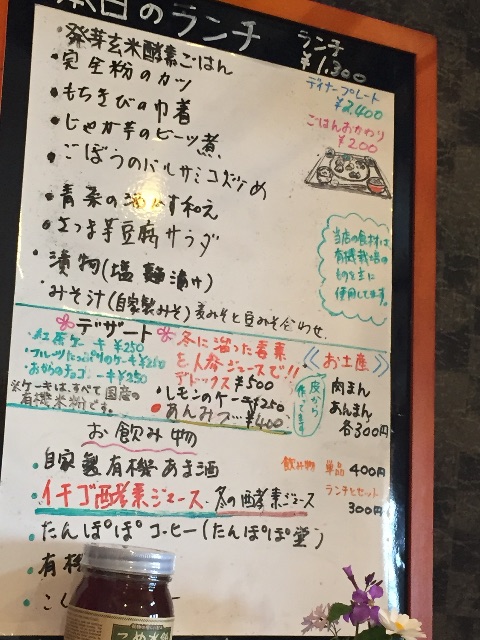 本日のランチ
ランチ
¥1,300
・発芽玄米酵素ごはん
ディナープレート
¥2,400
・もちきびの巾着
ごはんおかわり
¥200
・じゃが芋のビーツ煮
・ごぼうのバルサミコズケめ
・さつま芋豆腐サラダ
・漬物(塩麹漬け)
・みそ汁(自家製みそ)麦みそと豆みそ合わせ
当店の食材は
有機栽培の
ものを主に
使用してます。
デザート
・紅茶ケーキ ¥250
・フルーツたっぷりのケーキ ¥250
・おからのチョコケーキ ¥250
※ケーキは、すべて国産の
有機米粉です。
冬に溜った毒素
を人参ジュースで!!
デトックス ¥500
・レモンのケーキ ¥250
・あんみつ ¥400
《お土産》
皮から
作ってます
肉まん
あんまん
各300円
お飲み物
・自家製有機あま酒
飲み物 単品 400円
ランチとセット
300円
・イチゴ酵素ジュース・冬の酵素ジュース
・たんぽぽコーヒー(たんぽぽ堂)
・有機